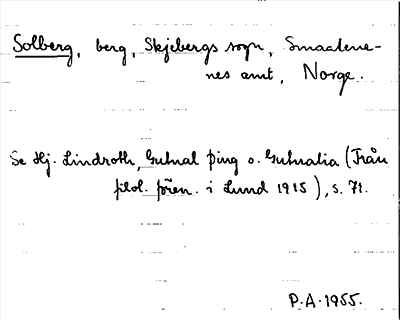 Solberg, berg, Skjebergs sogn, Smaalene-
nes amt, Norge.
Se Hj. Lindroth, Gutnal þing o. Gutnalia (Från
filol. fören. i Lund 1915), s. 71.
P.A. 1955.